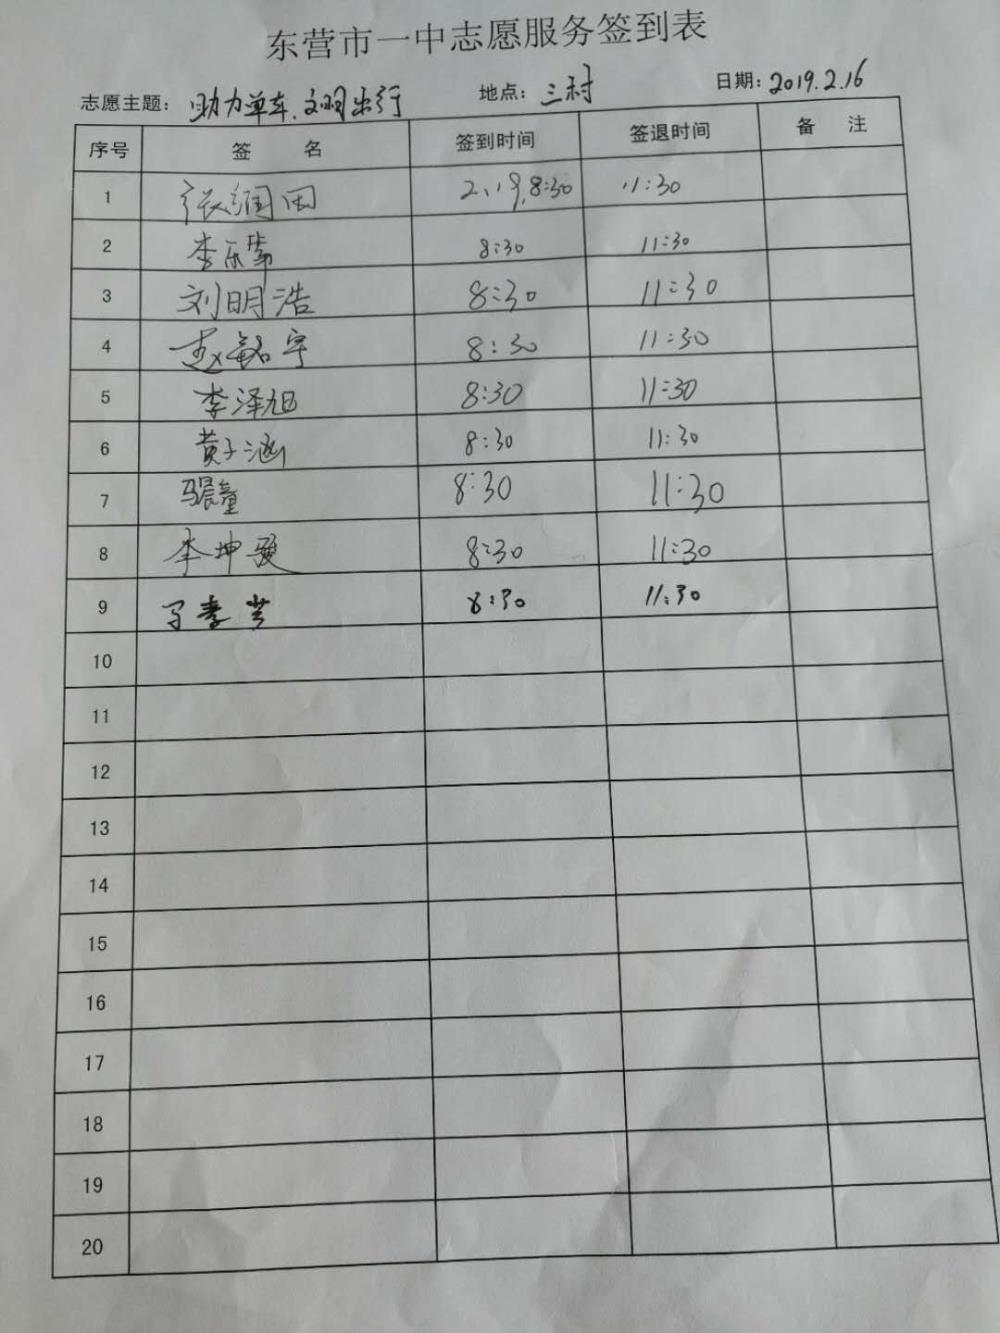 东营市一中志愿服务签到表
志愿主题：助力单车.文明出行 地点：三村 日期：2019.2.16
序号 签 名 签到时间 签退时间 备 注
1 张润田 2.19.8:30 11:30
2 李乐 8:30 11:30
3 刘明浩 8:30 11:30
4 赵铭宇 8:30 11:30
5 李泽旭 8:30 11:30
6 黄子涵 8:30 11:30
7 马晨童 8:30 11:30
8 李坤 8:30 11:30
9 8:30 11:30
10
11
12
13
14
15
16
17
18
19
20